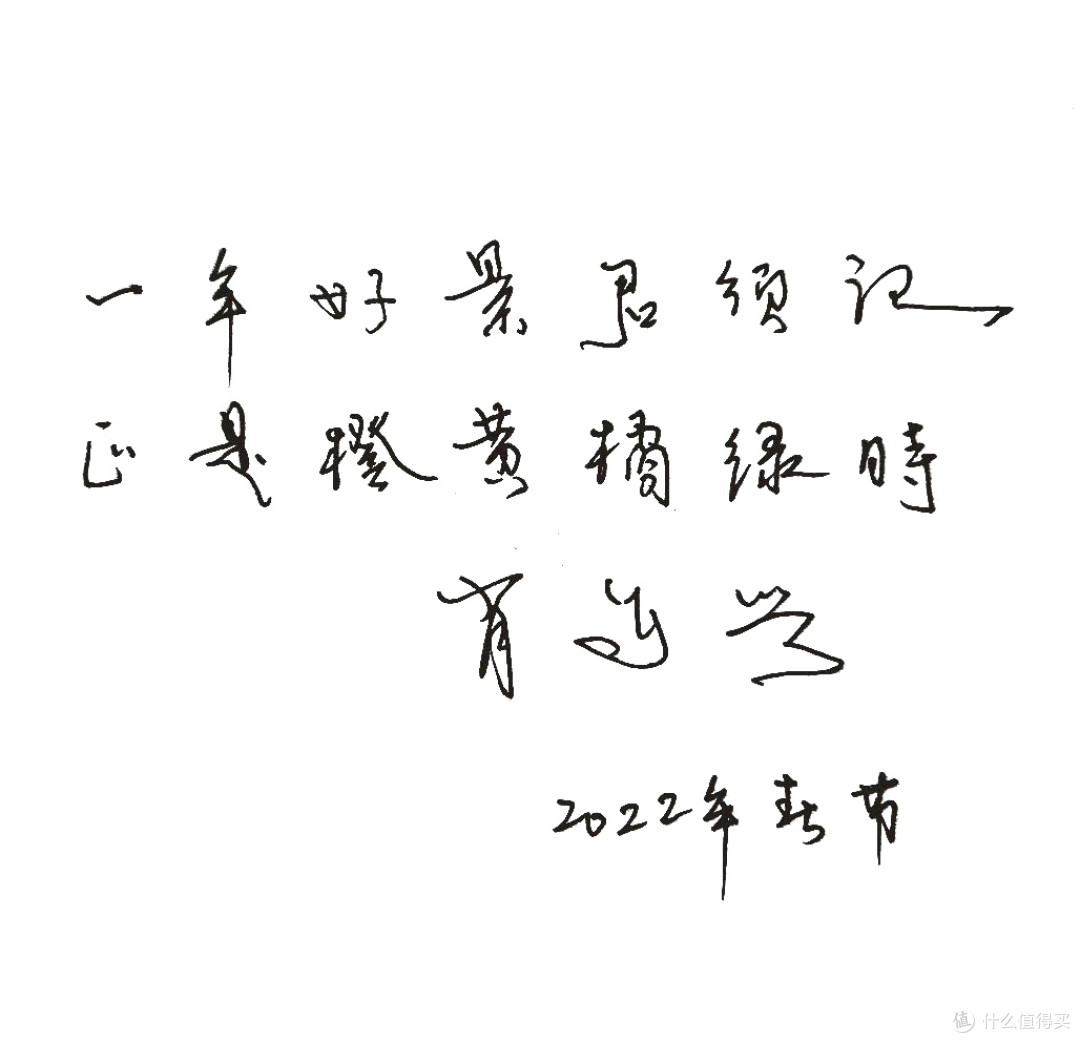 一年好景君须记
正是橙黄橘绿時
2022年春节
什么值得买